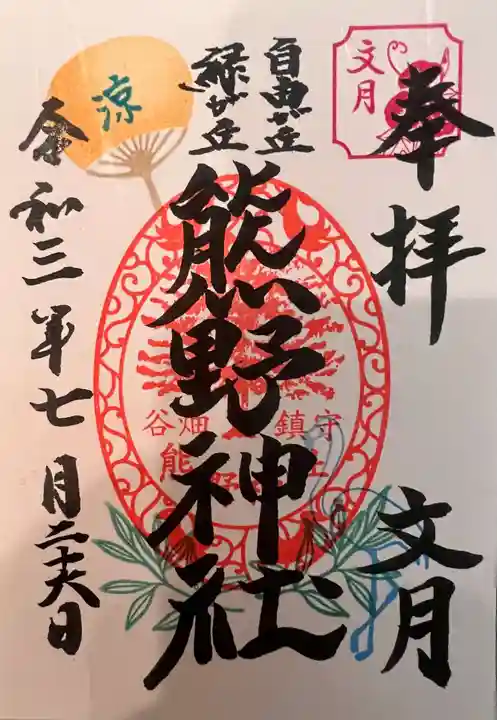 奉拝
文月
文月
自由が丘
緑が丘
熊野神社
谷畑 鎮守
熊野神社
涼
令和三年七月二十六日